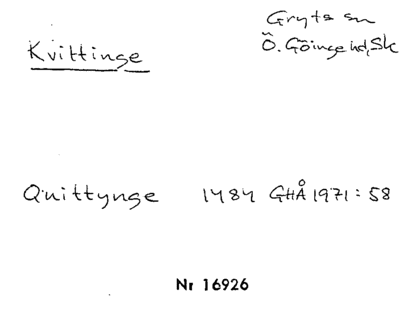 Kvittinge
Gryts sn
Ö. Göinge hd, Sk
Quittynge 1484 GHÅ 1971:58
Nr 16926